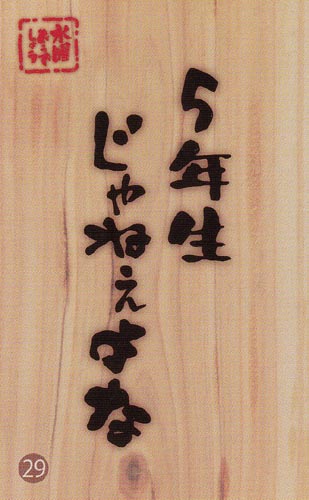 水曜
どうで
しょう
5年生
じゃねぇよな
29